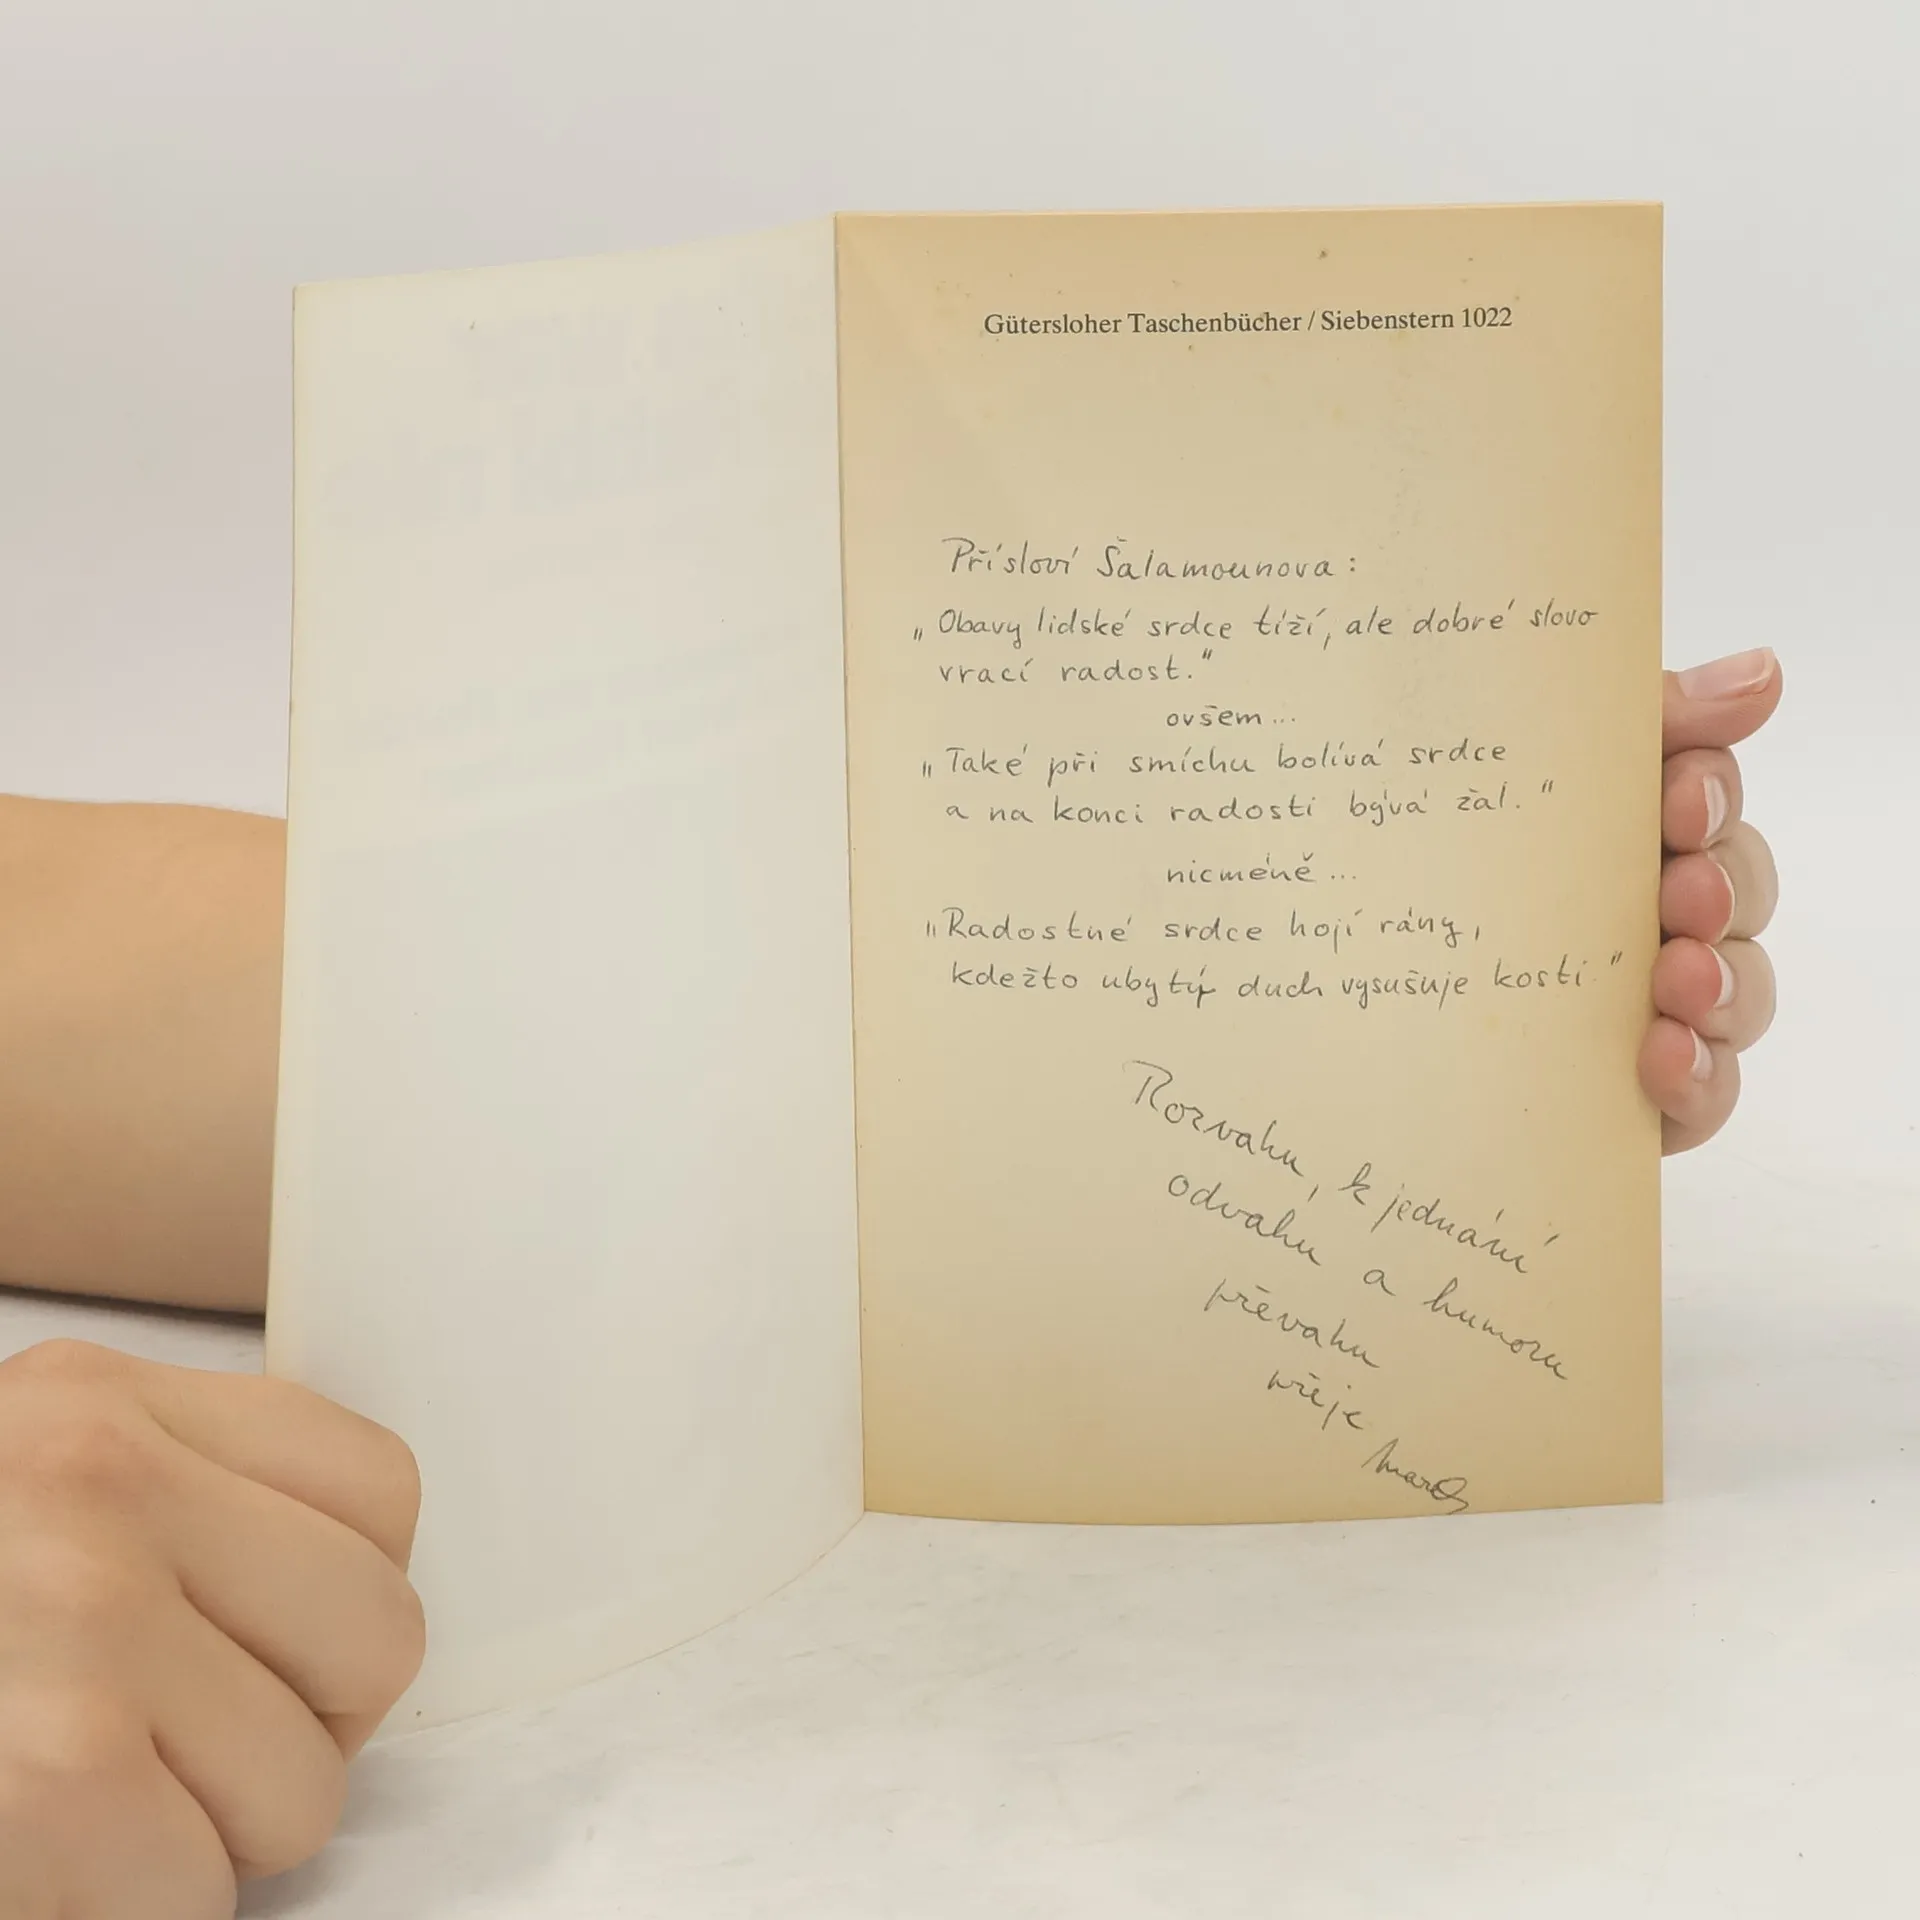 Gütersloher Taschenbücher / Siebenstern 1022
Přísloví Šalamounova:
„Obavy lidské srdce tíží, ale dobré slovo
vrací radost."
ovšem...
„Také při smíchu bolívá srdce
a na konci radosti bývá žal."
nicméně...
„Radostné srdce hojí rány,
kdežto ubytý duch vysušuje kosti."
Rozvahu, k jednání
odvahu a humoru
převahu
přeje